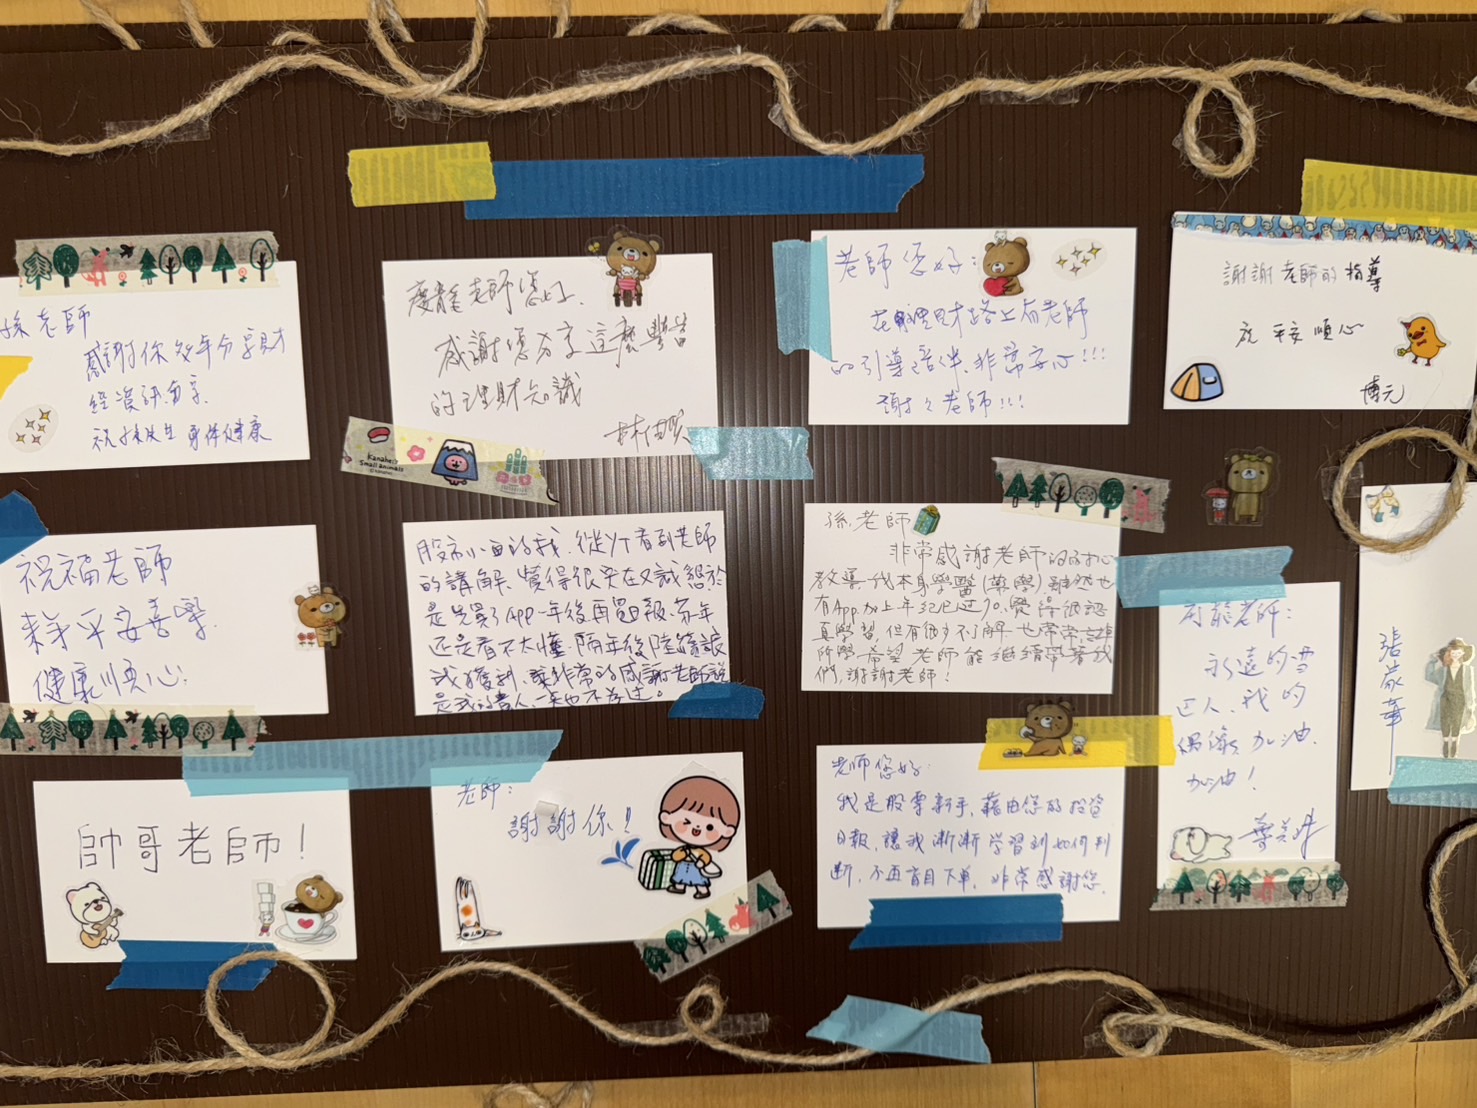 孫老師
感謝你多年分享財
經資訊
身體健康
慶龍老師您好
感謝您分享這麼豐富
的理財知識
老師您好:
在理財路上有老師
的引導陪伴非常安心!!!
謝謝老師!!!
謝謝老師的指導
祝 平安順心
博元
祝福老師
平安喜樂
健康順心
股市小白的我,從YT看到老師
的講解,覺得很實在又誠懇於
是先買了APP一年後再買日報,第一年
還是看不太懂,隔年後陸續讓
我獲利,讓非常的感謝老師說
是我的貴人一點也不為過。
孫老師
非常感謝老師的
教導,我本身學醫(藥學)雖然也
有App,加上年紀已過70,覺得很認
真學習,但有很多不了解也常常忘掉
所學,希望老師能繼續帶著我
們,謝謝老師!
老師:
永遠的
人,我的
偶像 加油.
加油!
張
華
帥哥老師!
老師:
謝謝你!!
老師您好:
我是股票新手,藉由您的投資
日報,讓我漸漸學習到如何判
斷,不再盲目下單,非常感謝您.
Kanahei's
Small animals